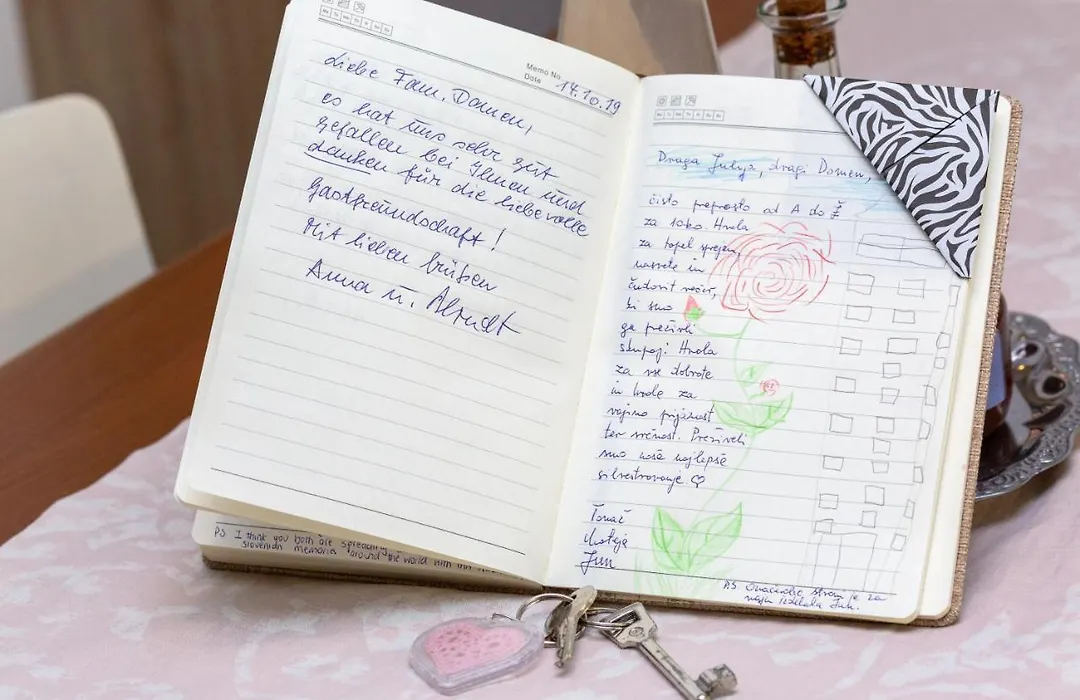 Memo No.
Date 14.10.19
Liebe Fam. Domen,
es hat uns sehr gut
gefallen bei Ihnen und
danken für die liebevolle
Gastfreundschaft!
Mit lieben Grüßen
Anna u.
PS I think you both are spreading
slovenian memories around the world with
Draga Julija, dragi Domen,
čisto preprosto od A do Ž
za vse. Hvala
za topel sprejem,
nasvete in
čudovit večer,
ki smo
ga preživeli
skupaj. Hvala
za vse dobrote
in hvala za
vajino prijaznost
ter srčnost. Preživeli
smo naše najlepše
silvestrovanje. ♡
Tomaž
Mateja
Jun
P.S. stran je za
vaju izdelala